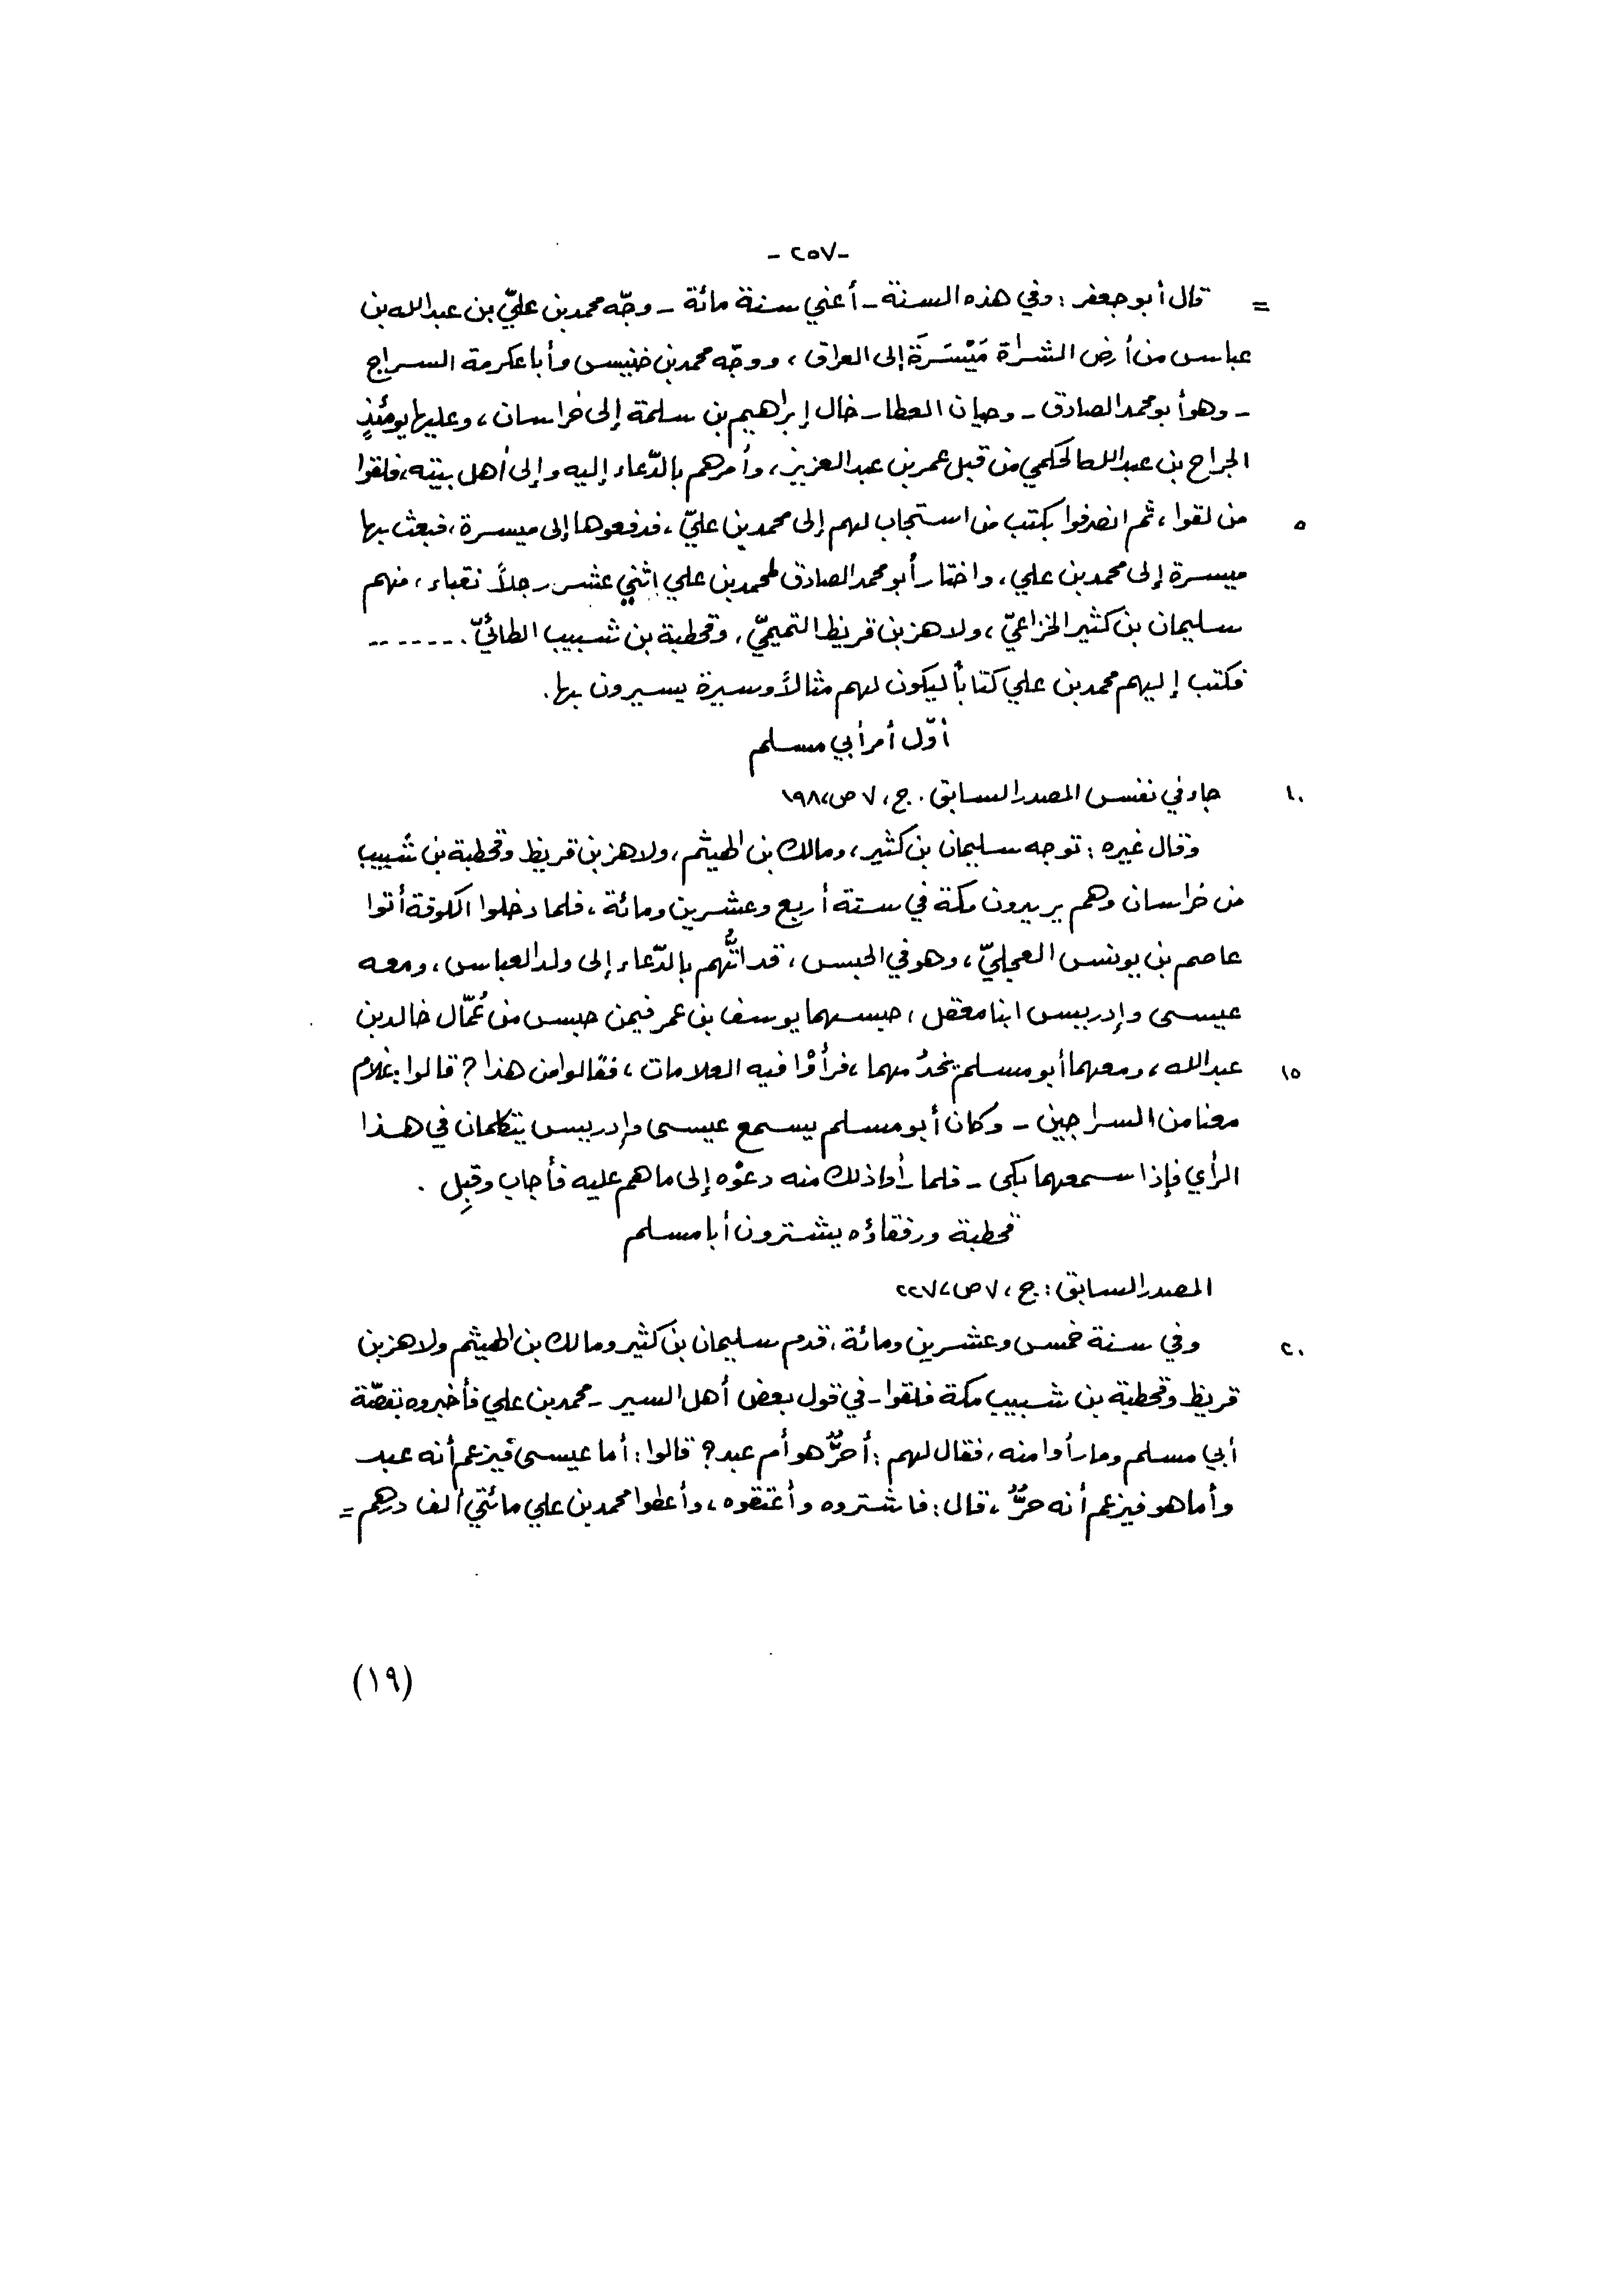 -٢٥٧-
= قال أبو جعفر : وفي هذه السنة - أعني سنة مائة - وجّه محمد بن عليّ بن عبد الله بن
عباس من أرض الشراة مَيْسَرَة إلى العراق ، ووجّه محمد بن خنيس وأبا عكرمة السراج
- وهو أبو محمد الصادق - وحيان العطار خال إبراهيم بن سلمة إلى خراسان ، وعليها يومئذٍ
الجراح بن عبد الله الحكمي من قبل عمر بن عبد العزيز ، وأمرهم بالدّعاء إليه وإلى أهل بيته ، فلقوا
٥ من لقوا ، ثم انصرفوا بكتب من استجاب لهم إلى محمد بن عليّ ، فدفعوها إلى ميسرة ، فبعث بها
ميسرة إلى محمد بن علي ، واختار أبو محمد الصادق لمحمد بن علي اثني عشر رجلاً نقباء ، منهم
سليمان بن كثير الخزاعيّ ، ولاهز بن قريظ التميميّ ، وقحطبة بن شبيب الطائيّ . ------
فكتب إليهم محمد بن علي كتاباً ليكون لهم مثالاً وسيرة يسيرون بها .
أوّل أمر أبي مسلم
١٠ جاء في نفس المصدر السابق . ج ، ٧ ص ، ١٩٨
وقال غيره : توجه سليمان بن كثير ، ومالك بن الهيثم ، ولاهز بن قريظ وقحطبة بن شبيب
من خراسان وهم يريدون مكة في سنة أربع وعشرين ومائة ، فلما دخلوا الكوفة أتوا
عاصم بن يونس العجليّ ، وهو في الحبس ، قد اتُّهم بالدّعاء إلى ولد العباس ، ومعه
عيسى وإدريس ابنا معقل ، حبسهما يوسف بن عمر فيمن حبس من عُمّال خالد بن
١٥ عبد الله ، ومعهما أبو مسلم يخدُمهما ، فرأوْا فيه العلامات ، فقالوا من هذا ؟ قالوا : غلام
معنا من السراجين - وكان أبو مسلم يسمع عيسى وإدريس يتكلمان في هذا
الرأي فإذا سمعهما بكى - فلما رأوا ذلك منه دعوْه إلى ما هم عليه فأجاب وقبِل .
قحطبة ورفقاؤه يشترون أبا مسلم
المصدر السابق : ج ، ٧ ص ، ٢٢٧
٢٠ وفي سنة خمس وعشرين ومائة ، قدم سليمان بن كثير ومالك بن الهيثم ولاهز بن
قريظ وقحطبة بن شبيب مكة فلقوا - في قول بعض أهل السير - محمد بن علي فأخبروه بقصّة
أبي مسلم وما رأوا منه ، فقال لهم : أحرٌّ هو أم عبد ؟ قالوا : أما عيسى فيزعم أنه عبد
وأما هو فيزعم أنه حرٌّ ، قال : فاشتروه وأعتقوه ، وأعطوا محمد بن علي مائتي ألف درهم =
(١٩)